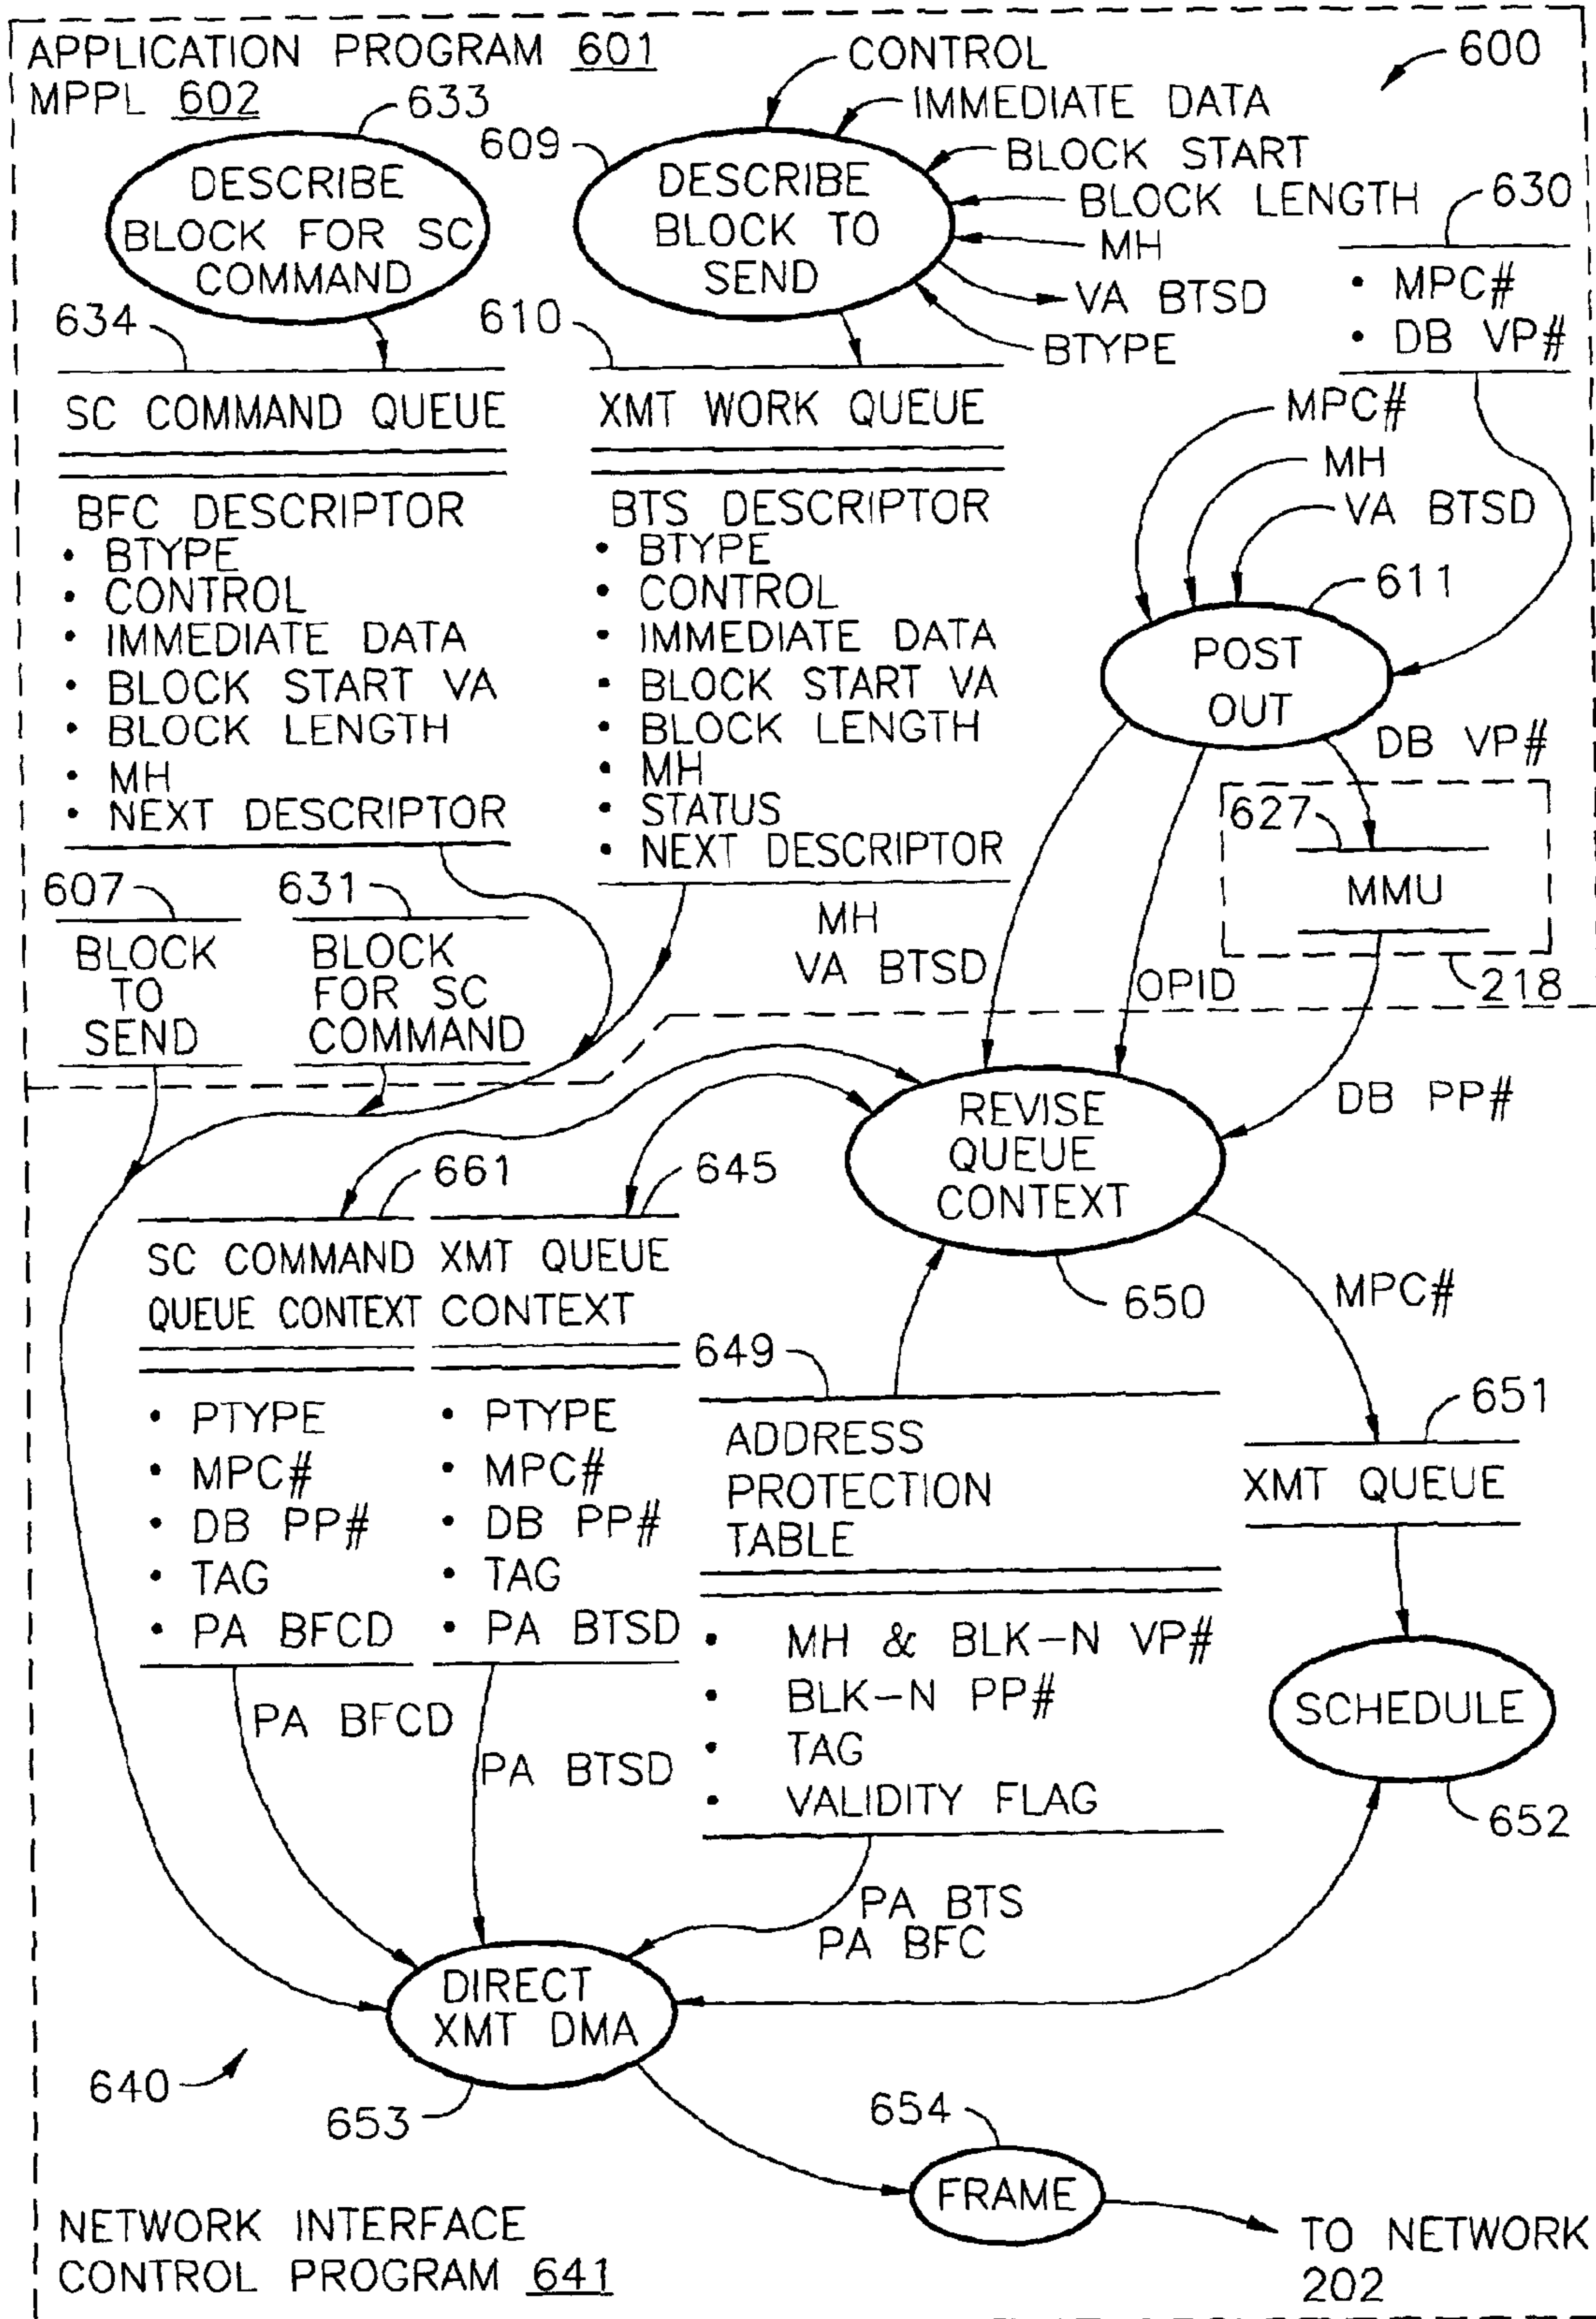 APPLICATION PROGRAM 601
MPPL 602
600
CONTROL
IMMEDIATE DATA
BLOCK START
BLOCK LENGTH
MH
VA BTSD
BTYPE
633
DESCRIBE
BLOCK FOR SC
COMMAND
609
DESCRIBE
BLOCK TO
SEND
630
• MPC#
• DB VP#
634
SC COMMAND QUEUE
BFC DESCRIPTOR
• BTYPE
• CONTROL
• IMMEDIATE DATA
• BLOCK START VA
• BLOCK LENGTH
• MH
• NEXT DESCRIPTOR
610
XMT WORK QUEUE
BTS DESCRIPTOR
• BTYPE
• CONTROL
• IMMEDIATE DATA
• BLOCK START VA
• BLOCK LENGTH
• MH
• STATUS
• NEXT DESCRIPTOR
MPC#
MH
VA BTSD
611
POST
OUT
DB VP#
627
MMU
218
607
BLOCK
TO
SEND
631
BLOCK
FOR SC
COMMAND
MH
VA BTSD
OPID
DB PP#
REVISE
QUEUE
CONTEXT
650
661
SC COMMAND
QUEUE CONTEXT
• PTYPE
• MPC#
• DB PP#
• TAG
• PA BFCD
645
XMT QUEUE
CONTEXT
• PTYPE
• MPC#
• DB PP#
• TAG
• PA BTSD
649
ADDRESS
PROTECTION
TABLE
• MH & BLK-N VP#
• BLK-N PP#
• TAG
• VALIDITY FLAG
MPC#
651
XMT QUEUE
SCHEDULE
652
PA BFCD
PA BTSD
PA BTS
PA BFC
DIRECT
XMT DMA
640
653
654
FRAME
TO NETWORK
202
NETWORK INTERFACE
CONTROL PROGRAM 641